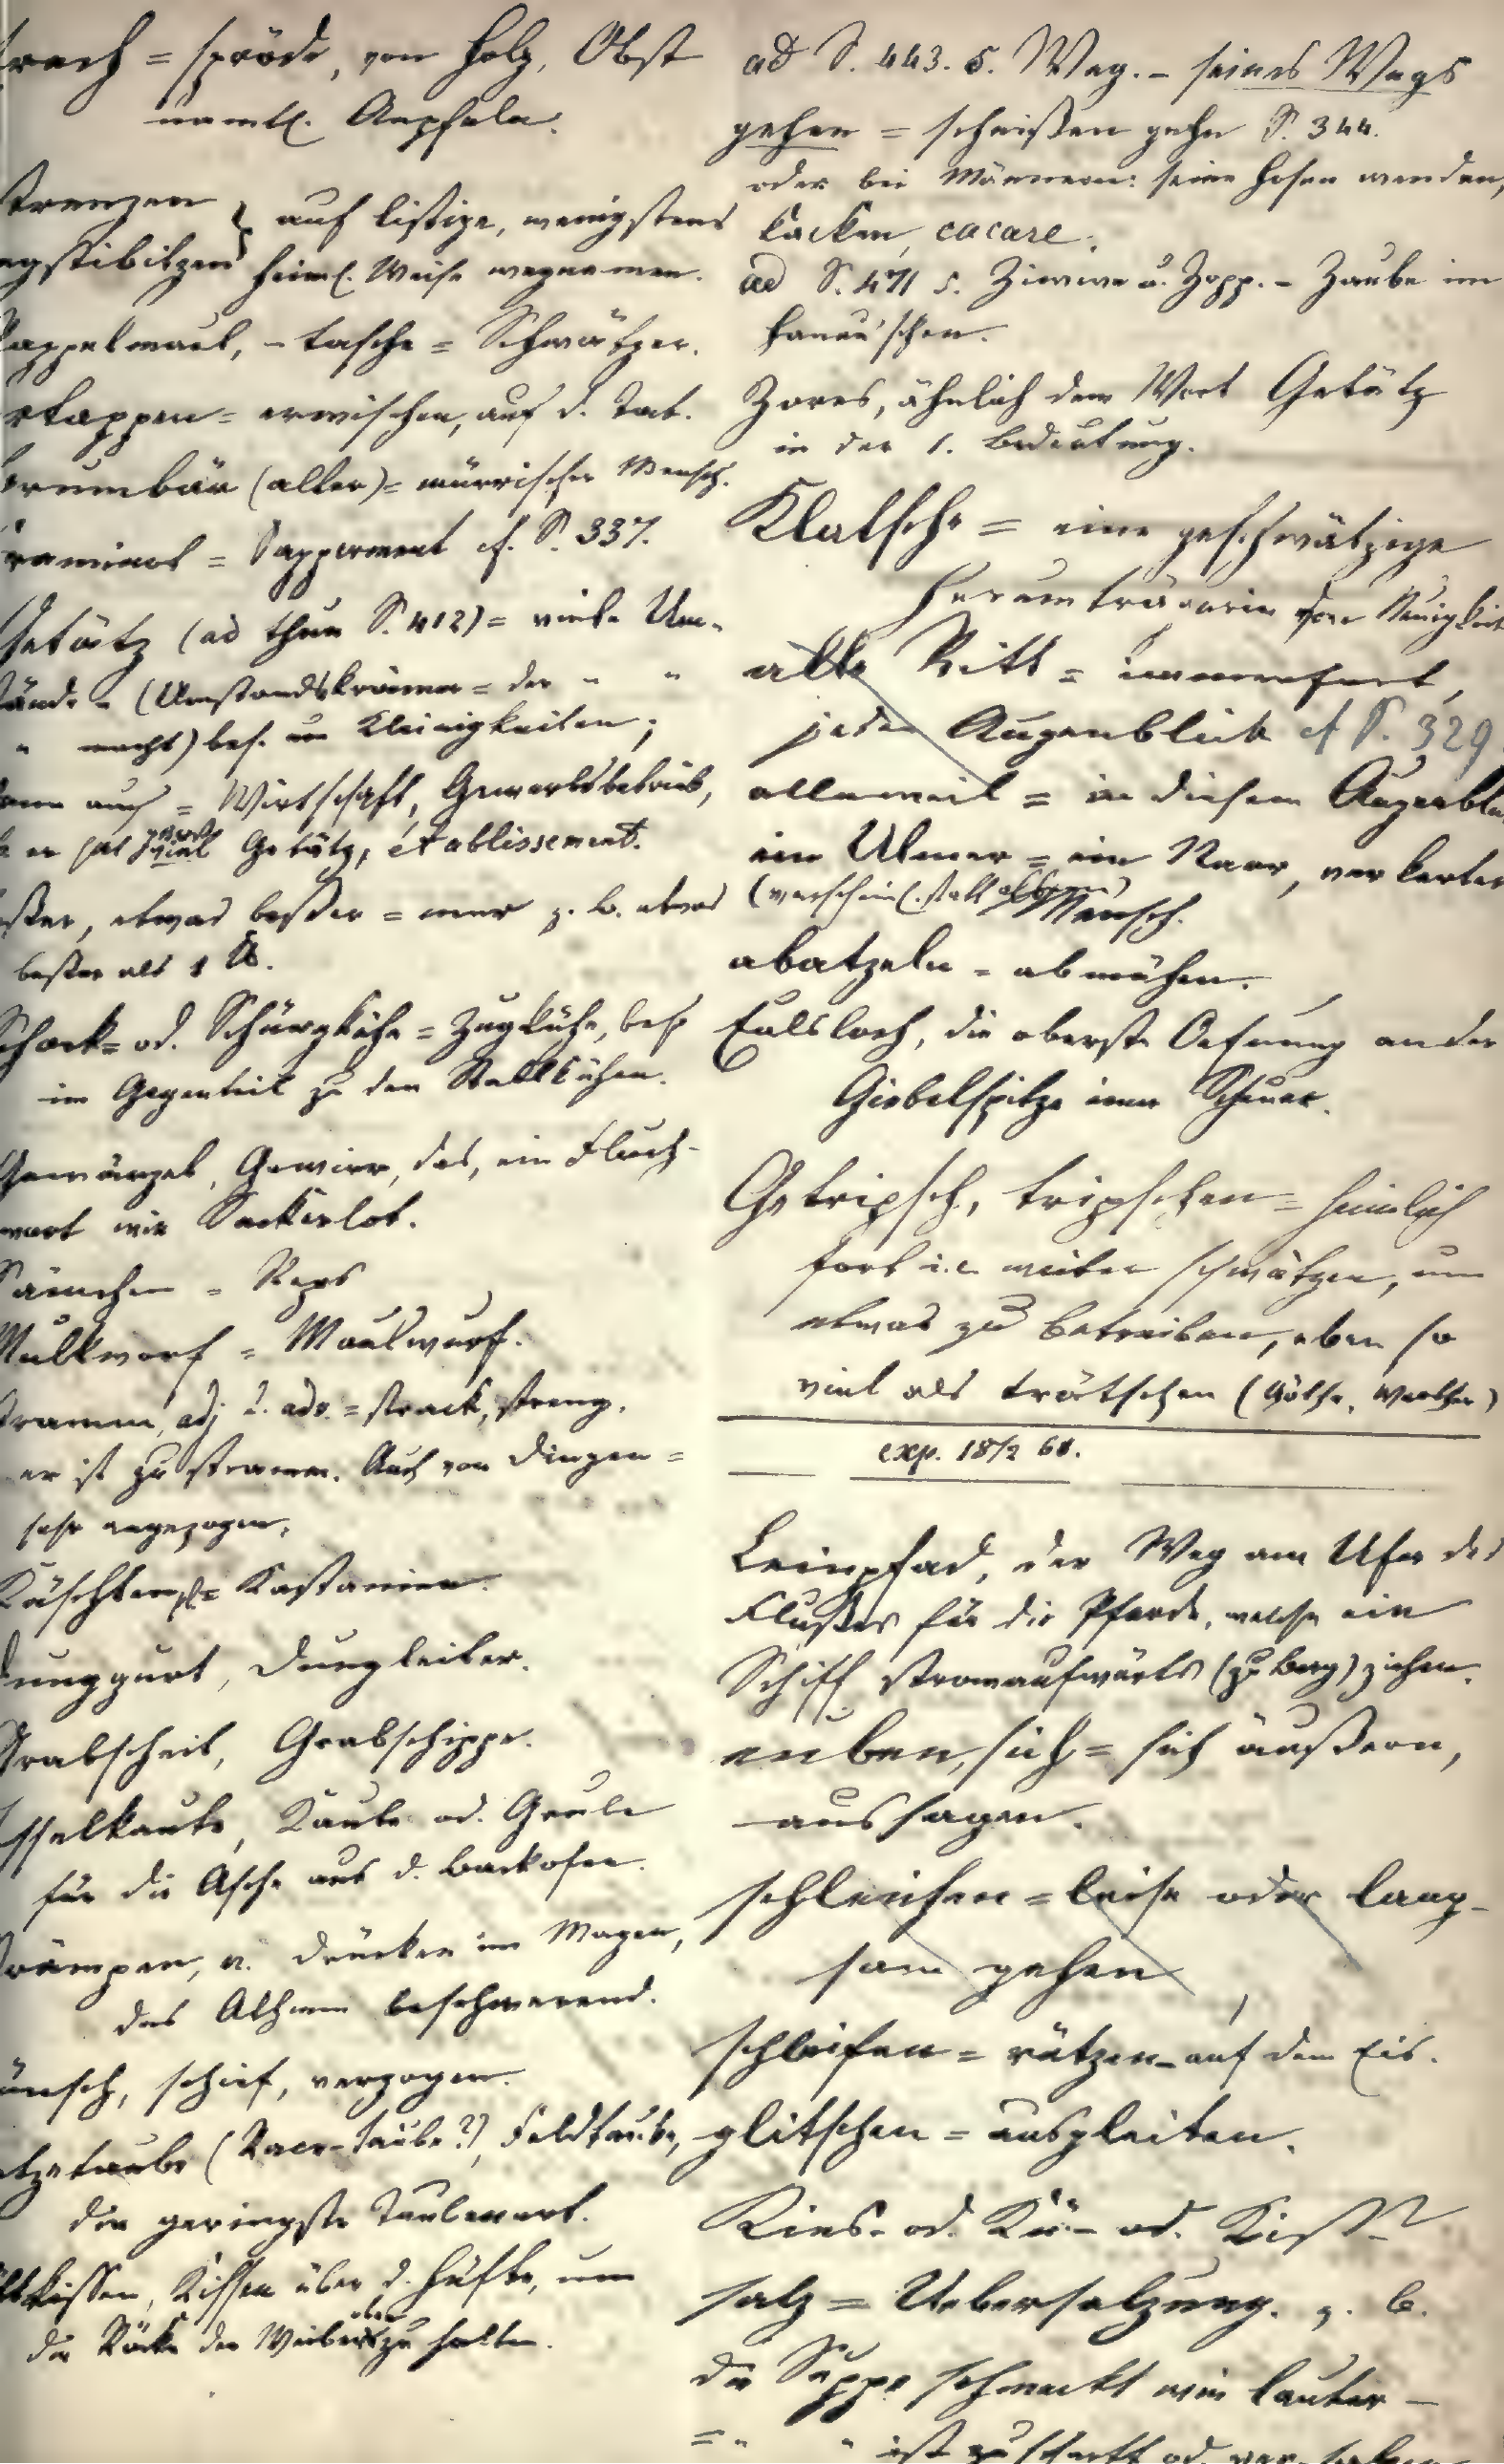 rach = spröde, von Holz, Obst
namtl. Aepfeln.
strenzen } auf listige, wenigstens
wegstibitzen } heiml. Weise wegnemen.
Pappelmaul, - tasche = Schwätzer.
ertappen = erwischen, auf d. Tat.
Brumbär (alter) = mürrischer Mensch.
= Sapperment cf. S. 337.
Getätz (ad thun S. 412) = viele Um-
stände - (Umstandskrämer = der " "
" macht) bes. um Kleinigkeiten;
dann auch = Wirtschaft, Gewerbsbetrieb,
er hat viel Getätz, établissement.
beßer, etwas beßer = mer z. B. etwas
beßer als 1 ℔.
Schock= od. Schürgkühe = Zugkühe, bes.
im Gegenteil zu den Stallkühen.
Gewürzel, Gewirr, das, ein Fluch-
wort wie Sackerlot.
Sämchen = Reps
Mullworf = Maulwurf.
stramm, adj. u. adv. = strack, streng.
er ist zu stramm. Auch von Dingen =
sehr angezogen.
Käschten, pl. = Kastanien.
Dunggurt, Dungleiter.
Grabscheit, Grabschippe.
Esselkaute, Kaute od. Grube
für die Asche aus d. Backofen.
Krämpen, n. Drücken im Magen,
das Athmen beschwerend.
wünsch, schief, verzogen.
Atzetaube (Racer-Taube?), Feldtaube,
die geringste Taubenart.
kissen, Kissen über d. Hüfte, um
die Röcke der Weiber oben zu halten.
ad S. 443. s. Weg. - seines Wegs
gehen = scheißen gehn S. 344.
oder bei Männern: seine Hosen wenden,
kacken, cacare.
ad S. 471 s. Ziwwe u. Zopp. - Zaube im
Hanau'schen.
Zores, ähnlich dem Wort Getätz
in der 1. Bedeutung.
Klatsche = eine geschwätzige
Herumträgerin von Neuigkeit
alle Ritt = immerfort,
jeden Augenblick cf S. 329
alleweil = in diesem Augenbli
ein Ulmer = ein Narr, verkerter
(warscheinl. statt ) Mensch.
abatzeln = abmühen.
Eulsloch, die oberste Oefnung an der
Giebelspitze einer Scheuer.
Getripsch, tripschen = heimlich
fort i. e. weiter schwätzen, um
etwas zu betreiben, eben so
viel als trätschen (Göthe, Werther)
exp. 18/2 61.
Leinpfad, der Weg am Ufer des
Flußes für die Pferde, welche ein
Schiff stromaufwärts (zu Berg) ziehen.
eußen, sich = sich äußern,
aussagen.
schleichen = leise oder lang-
sam gehen
schleifen = rätzen auf dem Eis.
glitschen = ausgleiten.
Kies- od. Kü- od. Kist-
salz = Uebersalzung. z. B.
die Suppe schmeckt wie lauter -
= " " ist zu scharf od.